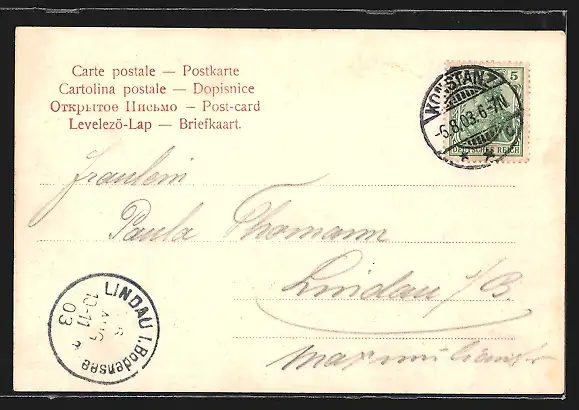 Carte postale — Postkarte
Cartolina postale — Dopisnice
Открытое Письмо — Post-card
Levelezö-Lap — Briefkaart.
5
KONSTANZ
-6.8.03.6-7N
DEUTSCHES REICH
Fräulein
Paula Thomann
Lindau i/B.
LINDAU i. Bodensee
6
AUG
10-11
03